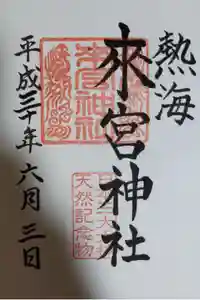 熱海
來宮神社
平成三十年六月三日
來宮神社
天然記念物